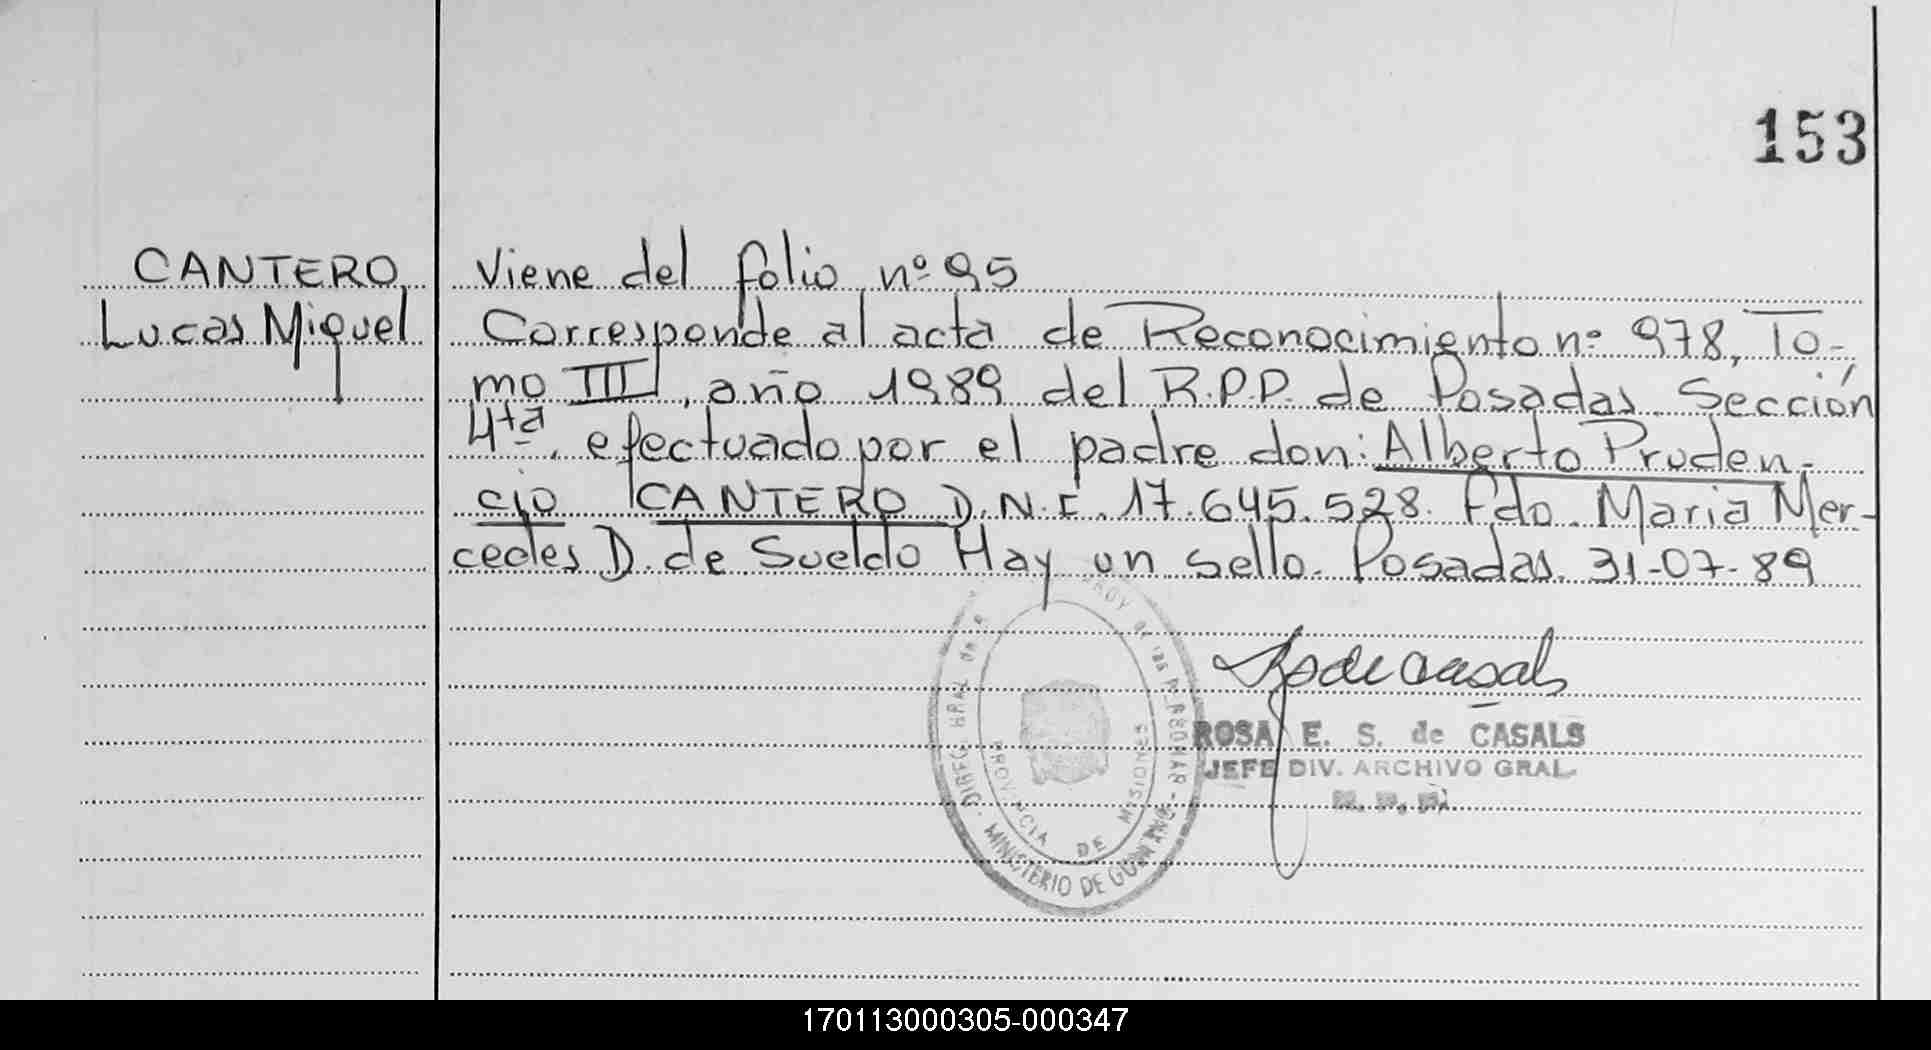 153
CANTERO
Lucas Miguel
Viene del folio nº 95
Corresponde al acta de Reconocimiento nº 978, To-
mo III, año 1989 del R.P.P. de Posadas Sección
4ta. efectuado por el padre don: Alberto Pruden-
cio CANTERO D.N.I. 17.645.528. Fdo. Maria Mer-
cedes D. de Sueldo Hay un sello. Posadas. 31-07-89
ROSA E. S. de CASALS
JEFE DIV. ARCHIVO GRAL.
MINISTERIO DE
PROVINCIA DE MISIONES
170113000305-000347